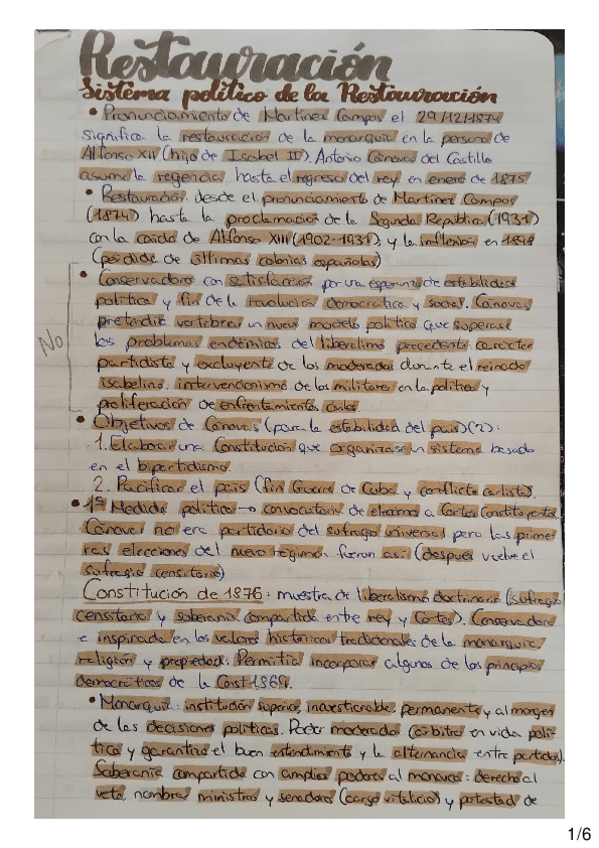 Restauración
Sistema político de la Restauración
• Pronunciamiento de Martínez Campos el 29/12/1874
significa la restauración de la monarquía en la persona de
Alfonso XII (hijo de Isabel II). Antonio Cánovas del Castillo
asume la regencia hasta el regreso del rey en enero de 1875
• Restauración: desde el pronunciamiento de Martínez Campos
(1874) hasta la proclamación de la Segunda República (1931)
con la caída de Alfonso XIII (1902-1931) y la inflexión en 1898
(pérdida de últimas colonias españolas)
• Conservadores con satisfacción por una esperanza de estabilidad
política y fin de la revolución democrática y social. Cánovas
pretendía vertebrar un nuevo modelo político que superase
No
los problemas endémicos del liberalismo precedente: carácter
partidista y excluyente de los moderados durante el reinado
isabelino, intervencionismo de los militares en la política y
proliferación de enfrentamientos civiles.
• Objetivos de Cánovas (para la estabilidad del país) (2):
1. Elaborar una Constitución que organizase un sistema basado
en el bipartidismo.
2. Pacificar el país (fin Guerra de Cuba y conflicto carlista).
• 1ª Medida política → convocatoria de elecciones a Cortes Constituyentes
Cánovas no era partidario del sufragio universal pero las prime-
ras elecciones del nuevo régimen fueron así (después vuelve el
sufragio censitario)
Constitución de 1876: muestra de liberalismo doctrinario (sufragio
censitario y soberanía compartida entre rey y Cortes). Conservadora
e inspirada en los valores históricos tradicionales de la monarquía,
religión y propiedad. Permitía incorporar algunos de los principios
democráticos de la Const 1869.
• Monarquía: institución superior, incuestionable, permanente y al margen
de las decisiones políticas. Poder moderador (árbitro en vida polí-
tica y garantiza el buen entendimiento y la alternancia entre partidos).
Soberanía compartida con amplios poderes al monarca: derecho al
veto, nombrar ministros y senadores (cargo vitalicio) y potestad de
1/6